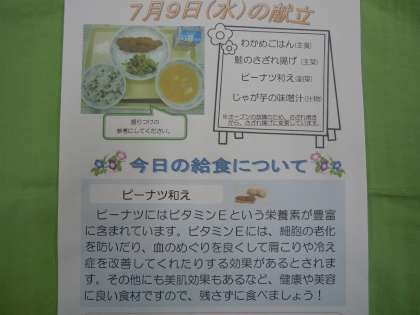 7月9日(水)の献立
わかめごはん(主食)
鮭のさざれ揚げ(主菜)
ピーナツ和え(副菜)
じゃが芋の味噌汁(汁物)
盛りつけの
参考にしてください。
今日の給食について
ピーナツ和え
ピーナツにはビタミンEという栄養素が豊富
に含まれています。ビタミンEには、細胞の老化
を防いだり、血のめぐりを良くして肩こりや冷え
症を改善してくれたりする効果があるとされま
す。その他にも美肌効果もあるなど、健康や美容
に良い食材ですので、残さずに食べましょう！